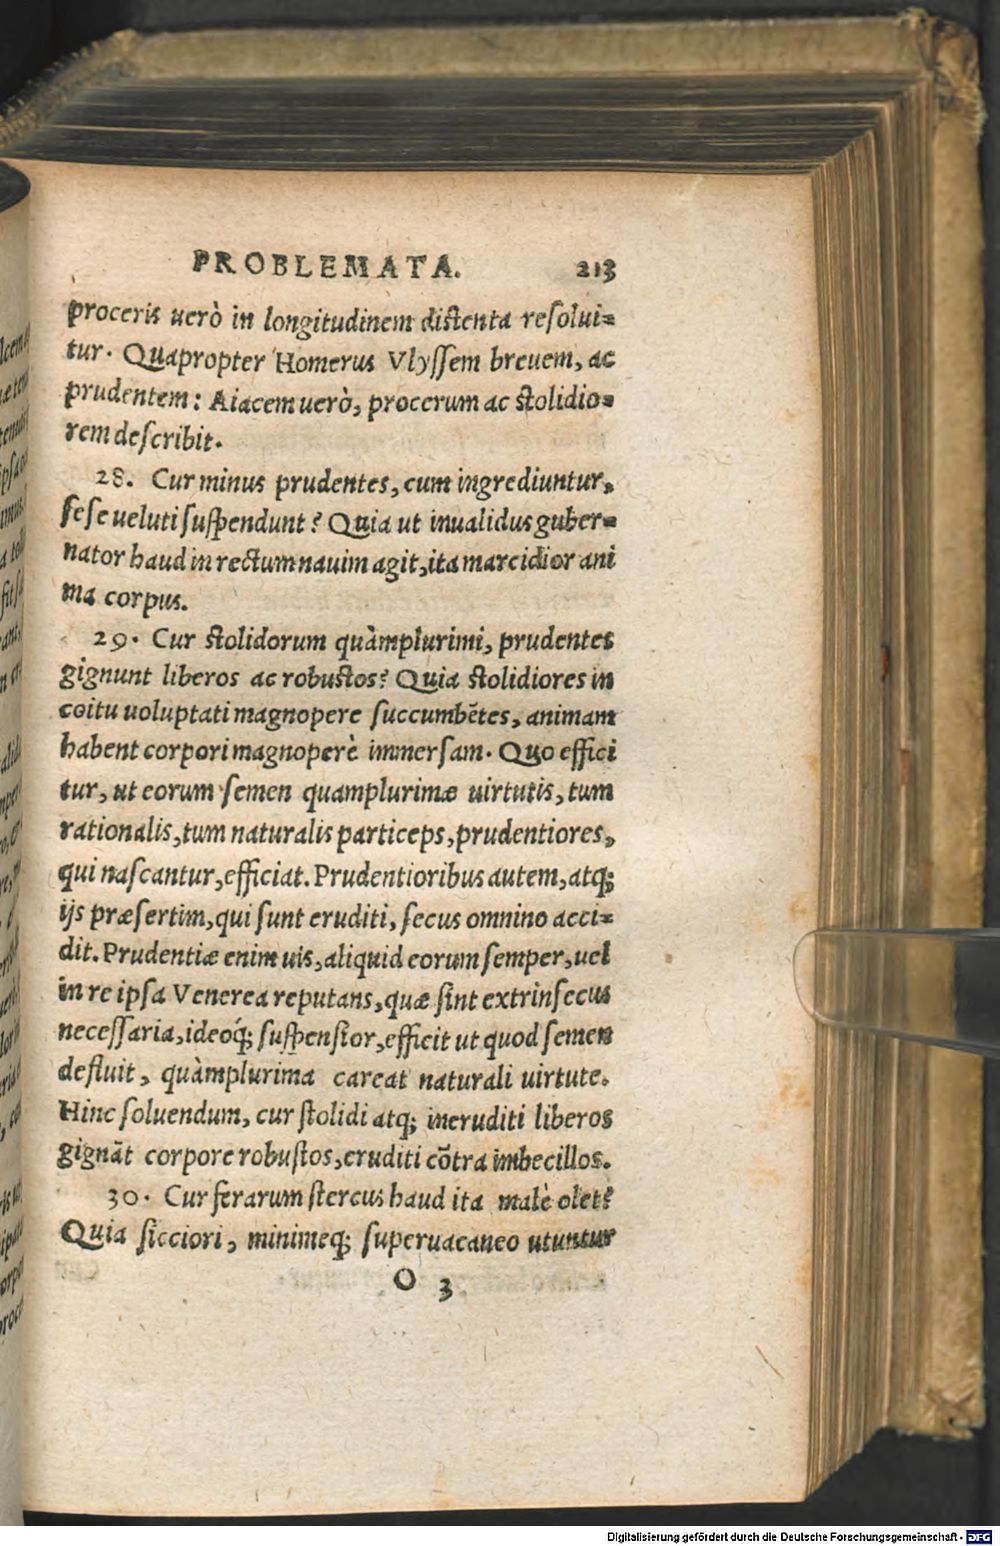 PROBLEMATA. 213
proceris uerò in longitudinem distenta resolui=
tur. Quapropter Homerus Vlyssem breuem, ac
prudentem: Aiacem uerò, procerum ac stolidio=
rem describit.
28. Cur minus prudentes, cum ingrediuntur,
sese ueluti suspendunt? Quia ut inualidus guber=
nator haud in rectum nauim agit, ita marcidior ani
ma corpus.
29. Cur stolidorum quàmplurimi, prudentes
gignunt liberos ac robustos? Quia stolidiores in
coitu uoluptati magnopere succumbẽtes, animam
habent corpori magnoperè immersam. Quo effici
tur, ut eorum semen quamplurimæ uirtutis, tum
rationalis, tum naturalis particeps, prudentiores,
qui nascantur, efficiat. Prudentioribus autem, atq;
ijs præsertim, qui sunt eruditi, secus omnino acci=
dit. Prudentiæ enim uis, aliquid eorum semper, uel
in re ipsa Venerea reputans, quæ sint extrinsecus
necessaria, ideoq́; suspensior, efficit ut quod semen
defluit, quàmplurima careat naturali uirtute.
Hinc soluendum, cur stolidi atq; ineruditi liberos
gignãt corpore robustos, eruditi cõtra imbecillos.
30. Cur ferarum stercus haud ita malè olet?
Quia sicciori, minimeq; superuacaneo utuntur
O 3
Digitalisierung gefördert durch die Deutsche Forschungsgemeinschaft - DFG